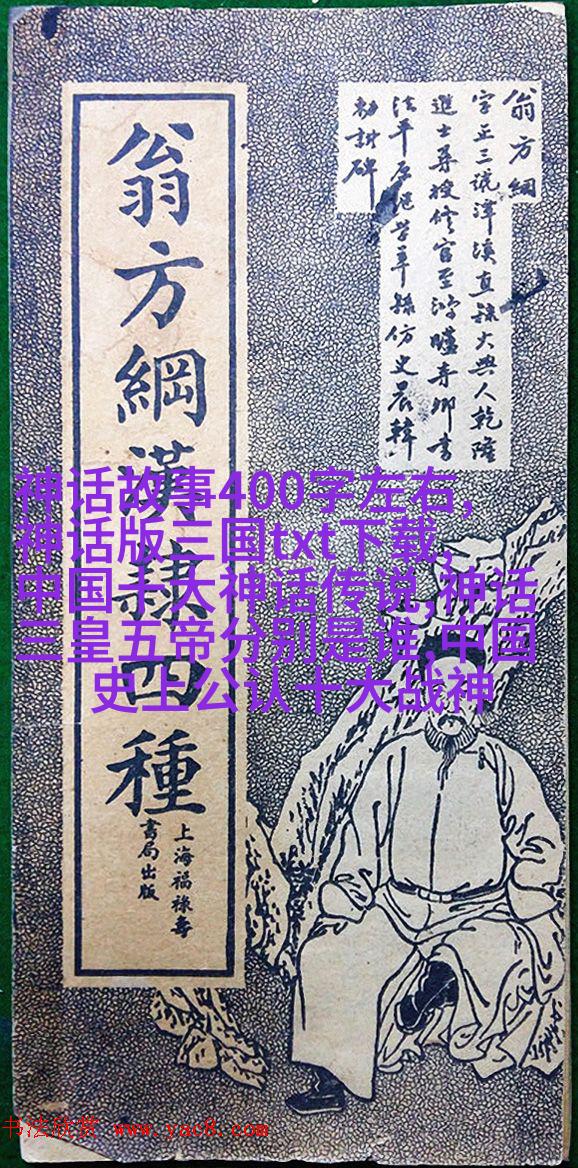 翁方綱
字正三號潭溪直隸大興人乾隆
進士尋授修官至鴻臚寺卿書
法平原繼莒率隸仿史晨韓
勅封碑
翁方綱漢隸四種
上海福祿壽
書局出版
神话故事400字左右,
神话版三国txt下载,
中国十大神话传说,神话
三皇五帝分别是谁,中国
史上公认十大战神
书法欣赏 www.yac8.com